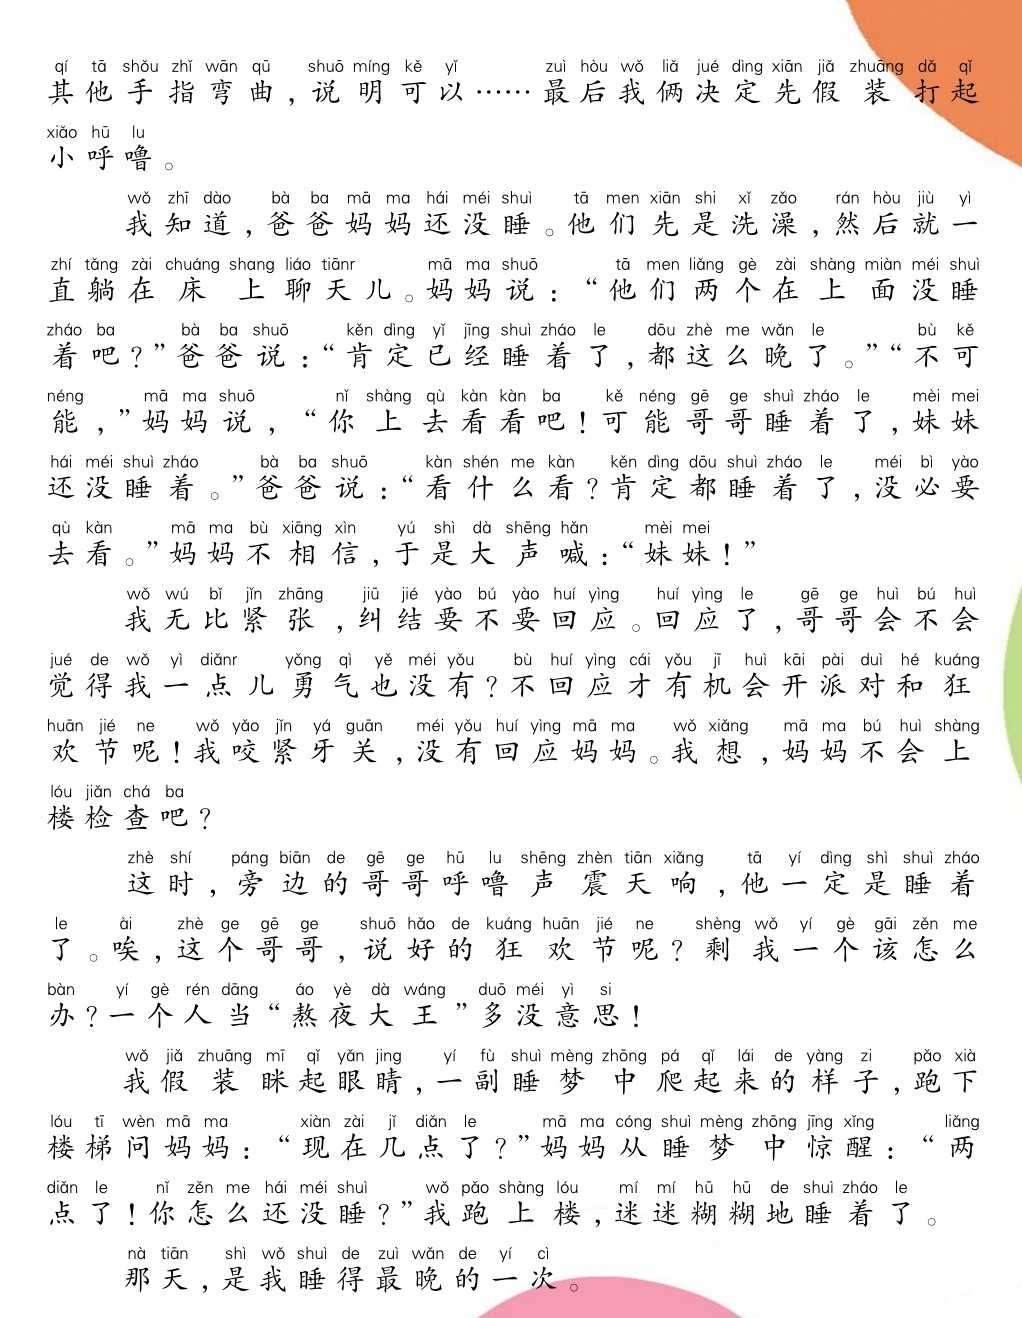 qí tā shǒu zhǐ wān qū shuō míng kě yǐ zuì hòu wǒ liǎ jué dìng xiān jiǎ zhuāng dǎ qǐ
其他手指弯曲，说明可以……最后我俩决定先假装打起
xiǎo hū lu
小呼噜。
wǒ zhī dào bà ba mā ma hái méi shuì tā men xiān shi xǐ zǎo rán hòu jiù yì
我知道，爸爸妈妈还没睡。他们先是洗澡，然后就一
zhí tǎng zài chuáng shang liáo tiānr mā ma shuō tā men liǎng gè zài shàng miàn méi shuì
直躺在床上聊天儿。妈妈说：“他们两个在上面没睡
zháo ba bà ba shuō kěn dìng yǐ jīng shuì zháo le dōu zhè me wǎn le bù kě
着吧？”爸爸说：“肯定已经睡着了，都这么晚了。”“不可
néng mā ma shuō nǐ shàng qù kàn kàn ba kě néng gē ge shuì zháo le mèi mei
能，”妈妈说，“你上去看看吧！可能哥哥睡着了，妹妹
hái méi shuì zháo bà ba shuō kàn shén me kàn kěn dìng dōu shuì zháo le méi bì yào
还没睡着。”爸爸说：“看什么看？肯定都睡着了，没必要
qù kàn mā ma bù xiāng xìn yú shì dà shēng hǎn mèi mei
去看。”妈妈不相信，于是大声喊：“妹妹！”
wǒ wú bǐ jǐn zhāng jiū jié yào bú yào huí yìng huí yìng le gē ge huì bú huì
我无比紧张，纠结要不要回应。回应了，哥哥会不会
jué de wǒ yì diǎnr yǒng qì yě méi yǒu bù huí yìng cái yǒu jī huì kāi pài duì hé kuáng
觉得我一点儿勇气也没有？不回应才有机会开派对和狂
huān jié ne wǒ yǎo jǐn yá guān méi yǒu huí yìng mā ma wǒ xiǎng mā ma bú huì shàng
欢节呢！我咬紧牙关，没有回应妈妈。我想，妈妈不会上
lóu jiǎn chá ba
楼检查吧？
zhè shí páng biān de gē ge hū lu shēng zhèn tiān xiǎng tā yí dìng shì shuì zháo
这时，旁边的哥哥呼噜声震天响，他一定是睡着
le ài zhè ge gē ge shuō hǎo de kuáng huān jié ne shèng wǒ yí gè gāi zěn me
了。唉，这个哥哥，说好的狂欢节呢？剩我一个该怎么
bàn yí gè rén dāng áo yè dà wáng duō méi yì si
办？一个人当“熬夜大王”多没意思！
wǒ jiǎ zhuāng mī qǐ yǎn jing yí fù shuì mèng zhōng pá qǐ lái de yàng zi pǎo xià
我假装眯起眼睛，一副睡梦中爬起来的样子，跑下
lóu tī wèn mā ma xiàn zài jǐ diǎn le mā ma cóng shuì mèng zhōng jīng xǐng liǎng
楼梯问妈妈：“现在几点了？”妈妈从睡梦中惊醒：“两
diǎn le nǐ zěn me hái méi shuì wǒ pǎo shàng lóu mí mí hū hū de shuì zháo le
点了！你怎么还没睡？”我跑上楼，迷迷糊糊地睡着了。
nà tiān shì wǒ shuì de zuì wǎn de yí cì
那天，是我睡得最晚的一次。